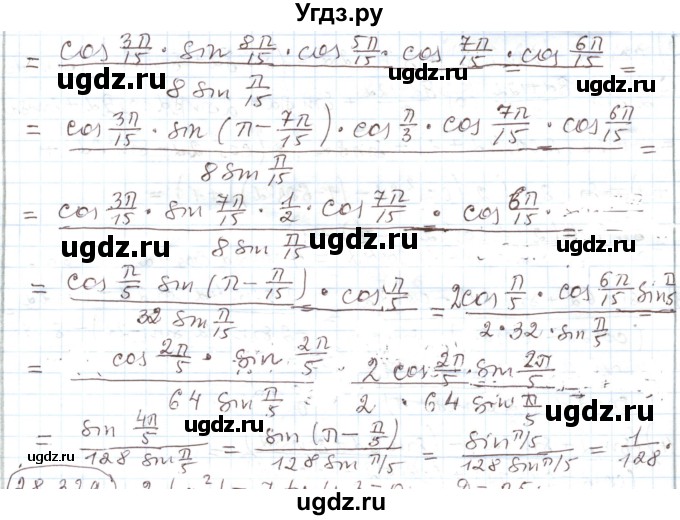 Угдз.ру
= cos 3π/15 · sin 8π/15 · cos 5π/15 · cos 7π/15 · cos 6π/15 / 8 sin π/15 =
ugdz.ru ugdz.ru ugdz.ru
= cos 3π/15 · sin (π - 7π/15) · cos π/3 · cos 7π/15 · cos 6π/15 / 8 sin π/15 =
ugdz.ru
= cos 3π/15 · sin 7π/15 · 1/2 · cos 7π/15 · cos 6π/15 / 8 sin π/15 =
ugdz.ru ugdz.ru ugdz.ru
= cos π/5 sin (π - π/15) · cos π/5 / 32 sin π/15 = 2cos π/5 · cos 6π/15 sin π/5 / 2 · 32 · sin π/5
ugdz.ru
= cos 2π/5 · sin 2π/5 / 64 sin π/5 2 cos 2π/5 · sin 2π/5 / 2 · 64 sin π/5 =
ugdz.ru ugdz.ru ugdz.ru
= sin 4π/5 / 128 sin π/5 = sin (π - π/5) / 128 sin π/5 = sin π/5 / 128 sin π/5 = 1/128 .
28.324
ugdz.ru